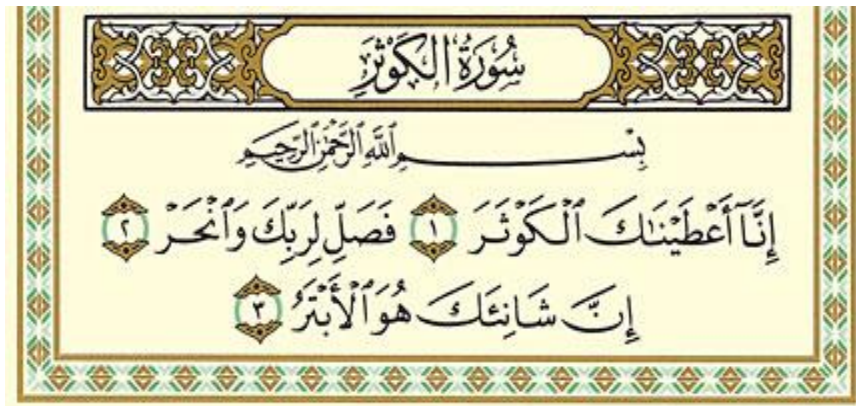 سُورَةُ الكَوْثَرِ
بِسْمِ ٱللَّهِ ٱلرَّحْمَٰنِ ٱلرَّحِيمِ
إِنَّآ أَعْطَيْنَٰكَ ٱلْكَوْثَرَ ١ فَصَلِّ لِرَبِّكَ وَٱنْحَرْ ٢
إِنَّ شَانِئَكَ هُوَ ٱلْأَبْتَرُ ٣